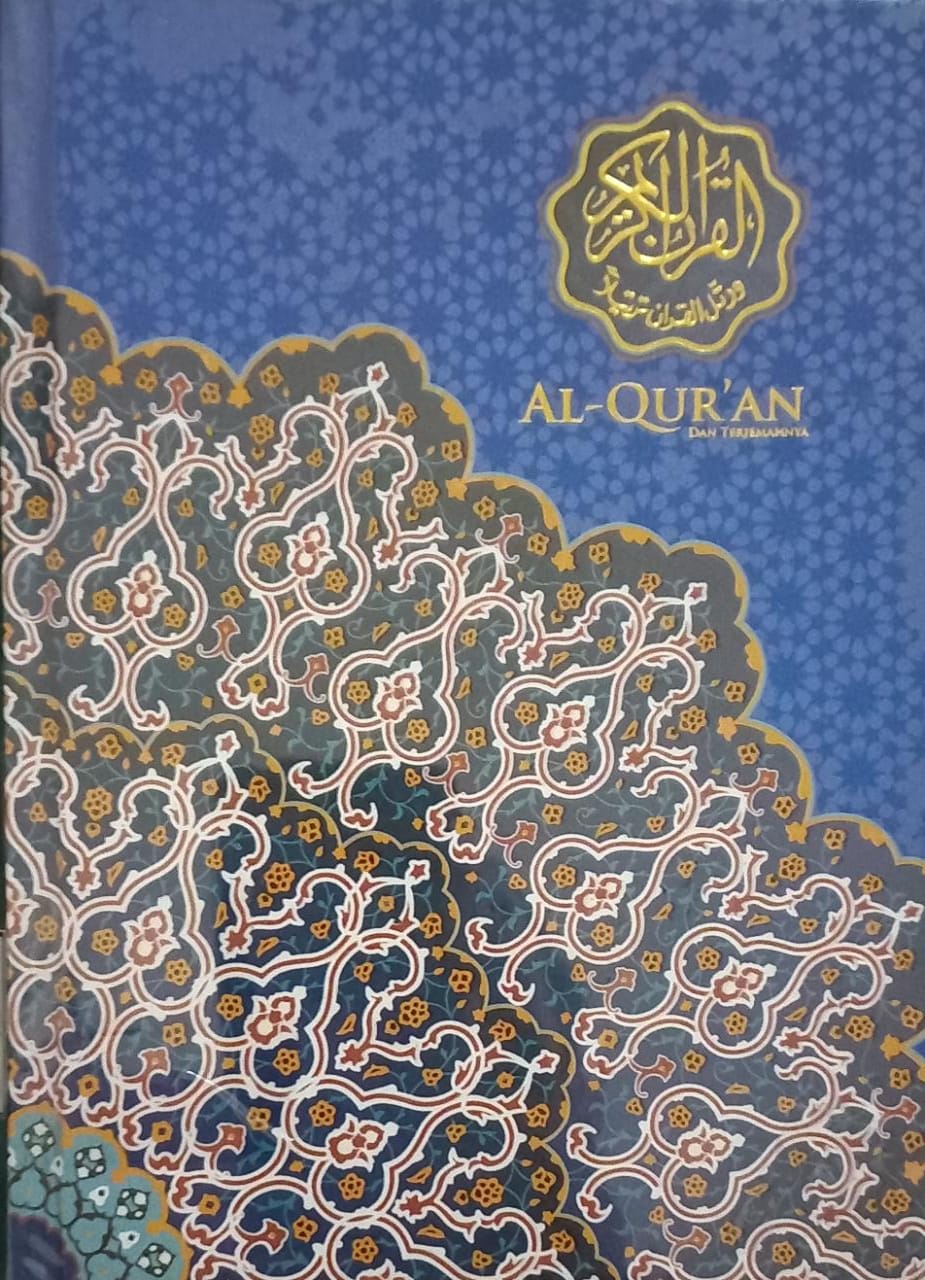 القرآن الكريم
ورتل القرآن ترتيلاً
AL-QUR'AN
DAN TERJEMAHNYA